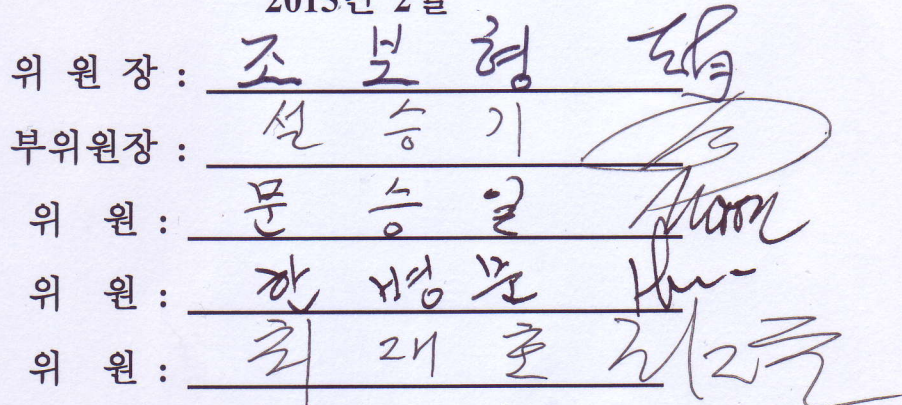 2013년 2월
위 원 장 : 조 보 형
부위원장 : 설 승 기
위 원 : 문 승 일 Moon
위 원 : 한 병 문
위 원 : 최 재 호